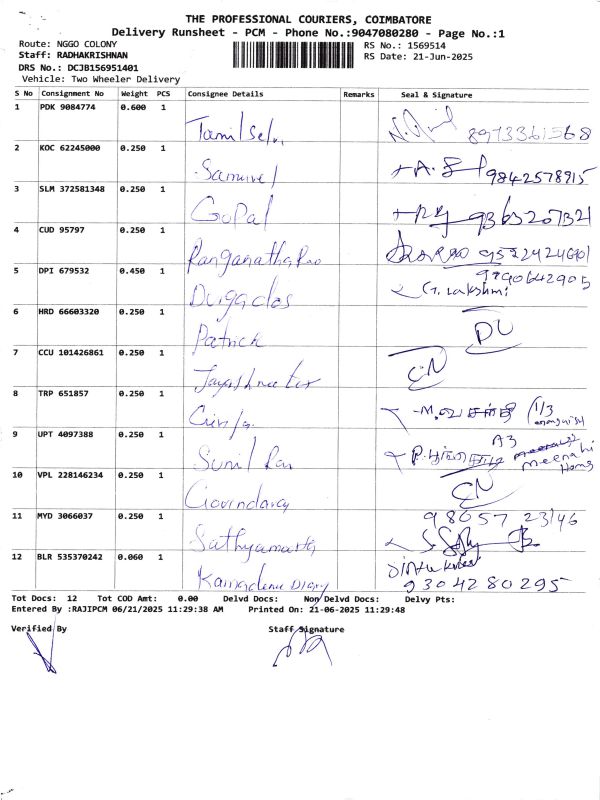 THE PROFESSIONAL COURIERS, COIMBATORE
Delivery Runsheet - PCM - Phone No.:9047080280 - Page No.:1
Route: NGGO COLONY
RS No.: 1569514
Staff: RADHAKRISHNAN
RS Date: 21-Jun-2025
DRS No.: DCJB156951401
Vehicle: Two Wheeler Delivery
S No Consignment No Weight PCS Consignee Details Remarks Seal & Signature
1 PDK 9084774 0.600 1 8973361568
2 KOC 62245000 0.250 1 Samuvel 9842578915
3 SLM 372581348 0.250 1 Gopal
4 CUD 95797 0.250 1 Ranganatha Rao
5 DPI 679532 0.450 1 Durgados 9790642905
G. Lakshmi
6 HRD 66603320 0.250 1 Patrick DL
7 CCU 101426861 0.250 1 CN
8 TRP 651857 0.250 1 1/3
9 UPT 4097388 0.250 1 Sunil A3
meenahi
Homs
10 VPL 228146234 0.250 1 CN
11 MYD 3066037 0.250 1 98057 23146
12 BLR 535370242 0.060 1 Kamadenu Diary
9304280295
Tot Docs: 12 Tot COD Amt: 0.00 Delvd Docs: Non Delvd Docs: Delvy Pts:
Entered By :RAJIPCM 06/21/2025 11:29:38 AM Printed On: 21-06-2025 11:29:48
Verified By Staff Signature